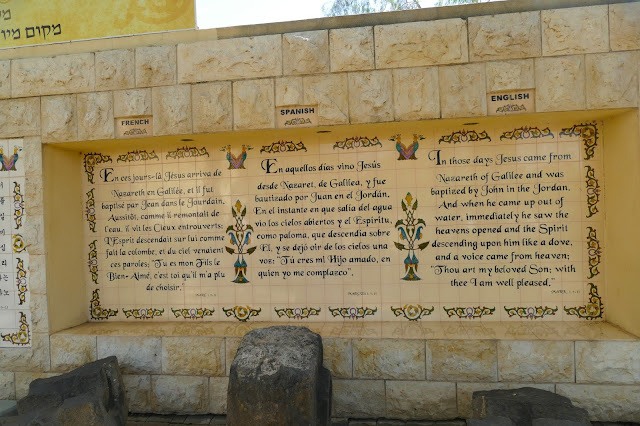 מקום
FRENCH
En ces jours-là, arriva de
Nazareth en Galilée, et il fut
baptisé par Jean dans le Jourdain.
Aussitôt, comme il remontait de
l'eau, il vit les Cieux entrouverts:
L'Esprit descendait sur lui comme
fait la colombe, et du ciel venaient
ces paroles: "Tu es mon Fils le
Bien-Aimé, c'est toi qu'il m'a plu
de choisir."
SPANISH
En aquellos días vino Jesús
desde Nazaret, de Galilea, y fue
bautizado por Juan en el Jordán.
En el instante en que salía del agua
vio los cielos abiertos y el Espíritu,
como paloma, que descendía sobre
El, y se dejó oir de los cielos una
voz: "Tú eres mi Hijo amado, en
quien yo me complazco".
ENGLISH
In those days Jesus came from
Nazareth of Galilee and was
baptized by John in the Jordan.
And when he came up out of
water, immediately he saw the
heavens opened and the Spirit
descending upon him like a dove,
and a voice came from heaven;
"Thou art my beloved Son; with
thee I am well pleased."